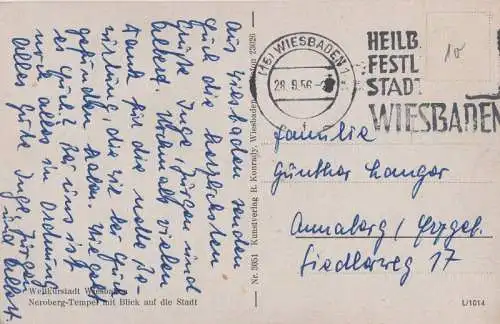 Aus Wiesbaden senden
Euch die herzlichsten
Grüße Inge, Jürgen und
Albert. Nochmals vielen
Dank für die nette Be-
wirtung, die wir bei Euch
gefunden haben. Wie geht
es Euch? Bei uns ist
noch alles in Ordnung
Alles Gute Inge, Jürgen
und Albert.
Weltkurstadt Wiesbaden
Neroberg-Tempel mit Blick auf die Stadt
Nr. 3051 Kunstverlag R. Konrady, Wiesbaden, 23626
(16) WIESBADEN 1
28.9.56
HEILB
FESTL
STADT
WIESBADEN
10
Familie
Günther Langer
Annaberg / Erzgeb.
Siedlerweg 17
L/1014